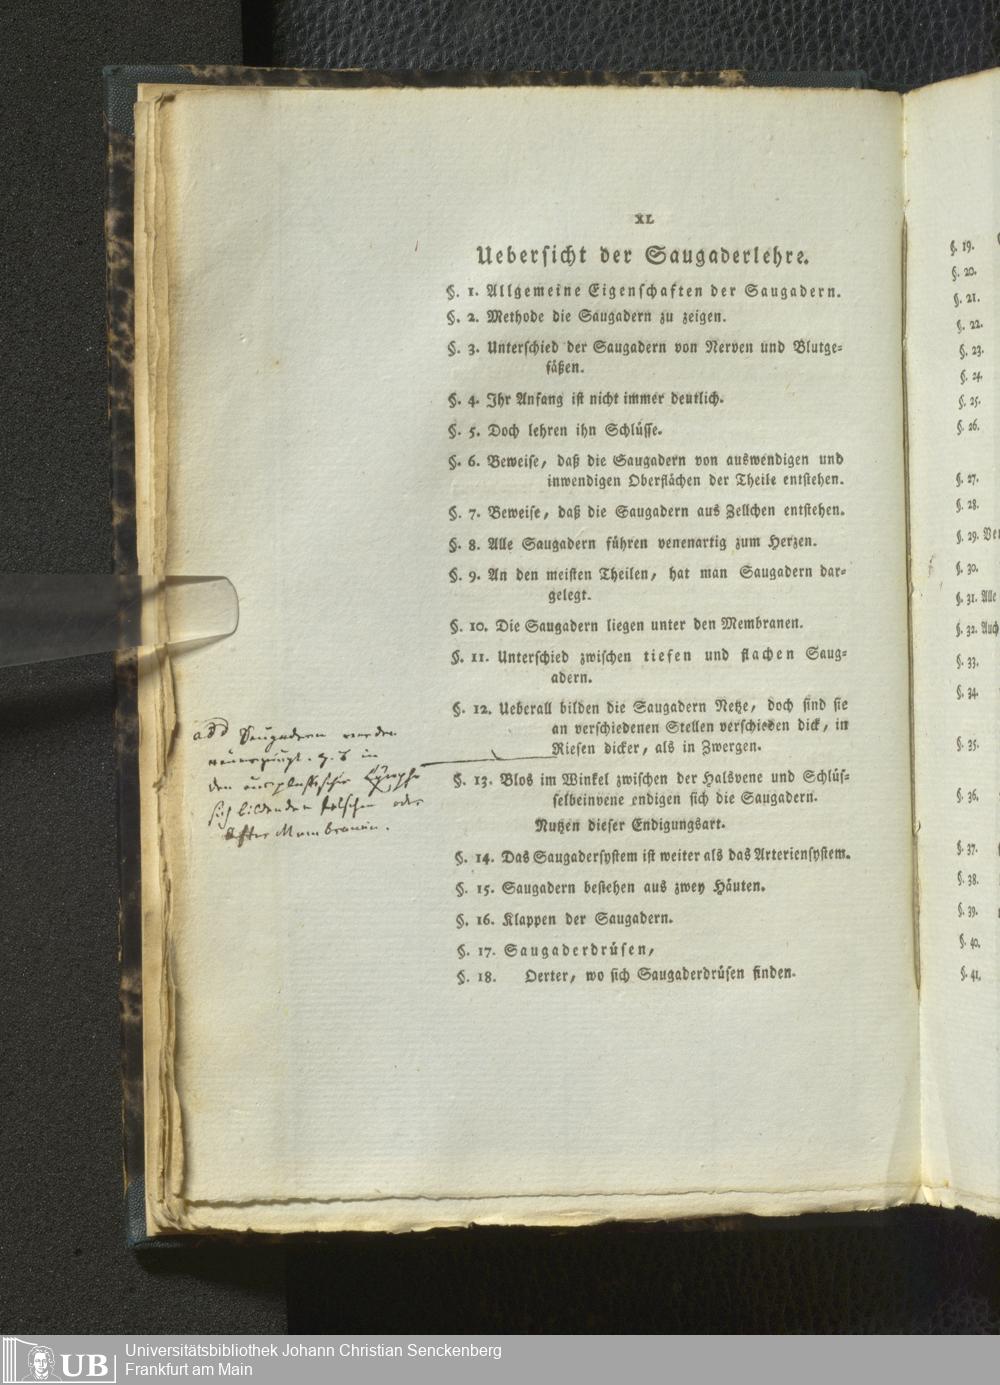 XL
Uebersicht der Saugaderlehre.
§. 1. Allgemeine Eigenschaften der Saugadern.
§. 2. Methode die Saugadern zu zeigen.
§. 3. Unterschied der Saugadern von Nerven und Blutge=
fäßen.
§. 4. Ihr Anfang ist nicht immer deutlich.
§. 5. Doch lehren ihn Schlüsse.
§. 6. Beweise, daß die Saugadern von auswendigen und
inwendigen Oberflächen der Theile entstehen.
§. 7. Beweise, daß die Saugadern aus Zellchen entstehen.
§. 8. Alle Saugadern führen venenartig zum Herzen.
§. 9. An den meisten Theilen, hat man Saugadern dar=
gelegt.
§. 10. Die Saugadern liegen unter den Membranen.
§. 11. Unterschied zwischen tiefen und flachen Saug=
adern.
§. 12. Ueberall bilden die Saugadern Netze, doch sind sie
an verschiedenen Stellen verschieden dick, in
Riesen dicker, als in Zwergen.
§. 13. Blos im Winkel zwischen der Halsvene und Schlüs=
selbeinvene endigen sich die Saugadern.
Nutzen dieser Endigungsart.
§. 14. Das Saugadersystem ist weiter als das Arteriensystem.
§. 15. Saugadern bestehen aus zwey Häuten.
§. 16. Klappen der Saugadern.
§. 17. Saugaderdrüsen,
§. 18. Oerter, wo sich Saugaderdrüsen finden.
add Saugadern werden
z. B in
den Lymphe
sich bildenden falschen oder
After Membranen.
§. 19.
§. 20.
§. 21.
§. 22.
§. 23.
§. 24.
§. 25.
§. 26.
§. 27.
§. 28.
§. 29.
§. 30.
§. 31. Alle
§. 32. Auch
§. 33.
§. 34.
§. 35.
§. 36.
§. 37.
§. 38.
§. 39.
§. 40.
§. 41.
UB Universitätsbibliothek Johann Christian Senckenberg
Frankfurt am Main